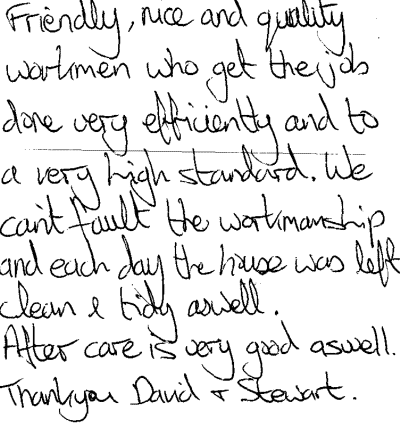 Friendly, nice and quality
workmen who get the job
done very efficiently and to
a very high standard. We
can't fault the workmanship
and each day the house was left
clean & tidy aswell.
After care is very good aswell.
Thankyou David + Stewart.